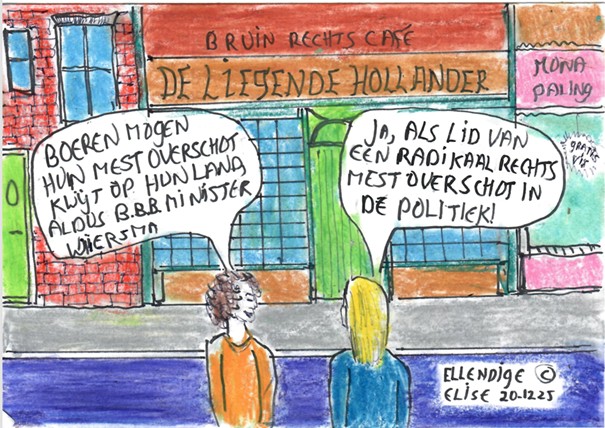 BRUIN RECHTS CAFÉ
DE LIEGENDE HOLLANDER
MONA
PALING
GRATIS
VIS
BOEREN MOGEN
HUN MEST OVERSCHOT
KWIJT OP HUN LAND
ALDUS B.B.B. MINISTER
WIERSMA
JA, ALS LID VAN
EEN RADIKAAL RECHTS
MEST OVERSCHOT IN
DE POLITIEK!
ELLENDIGE ©
ELISE 20-12-25